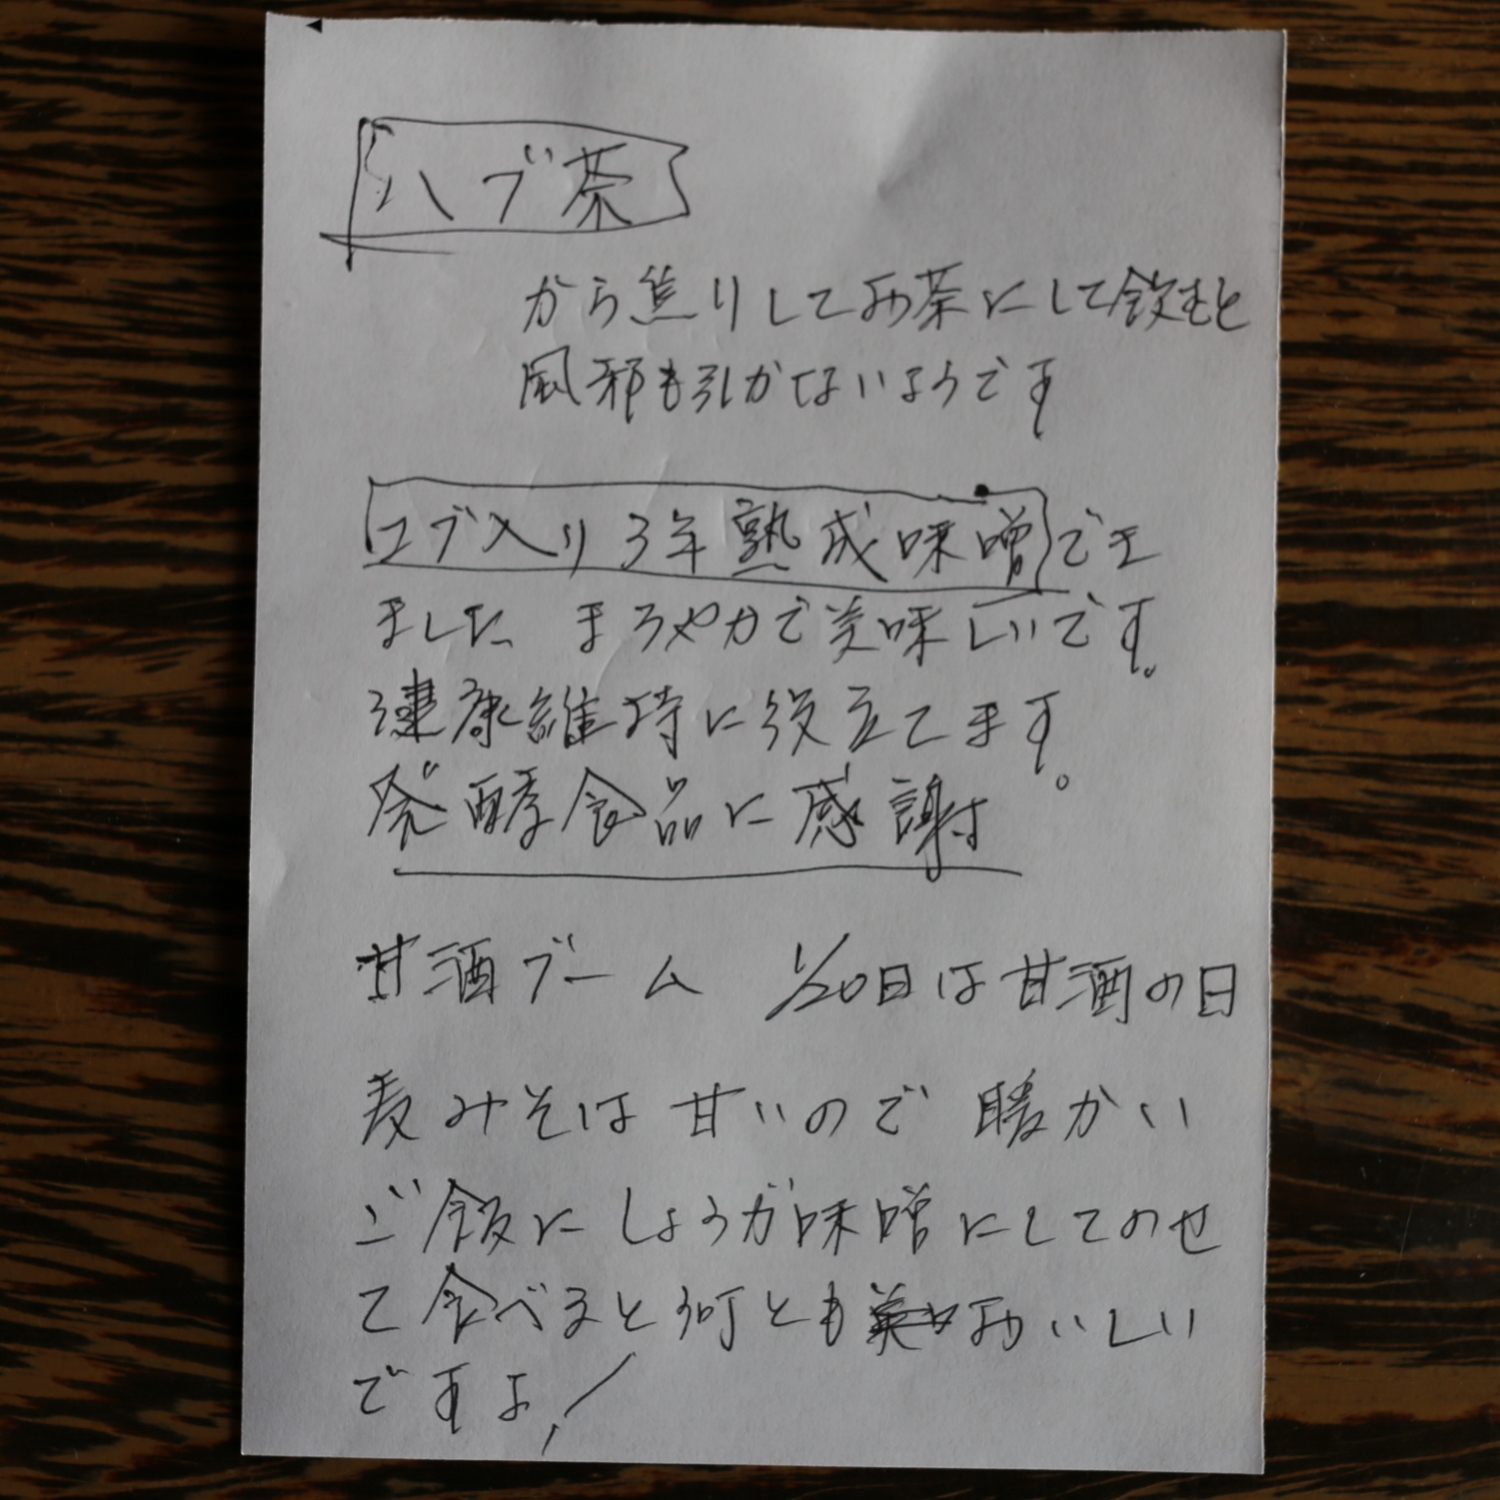 ハブ茶
から焦りしてお茶にして飲むと
風邪も引かないようです
コブ入り3年熟成味噌でき
ました まろやかで美味しいです。
健康維持に役立てます。
発酵食品に感謝
甘酒ブーム 1/20日は甘酒の日
麦みそは甘いので暖かい
ご飯にしょうが味噌にしてのせ
て食べると何ともおいしい
ですよ!